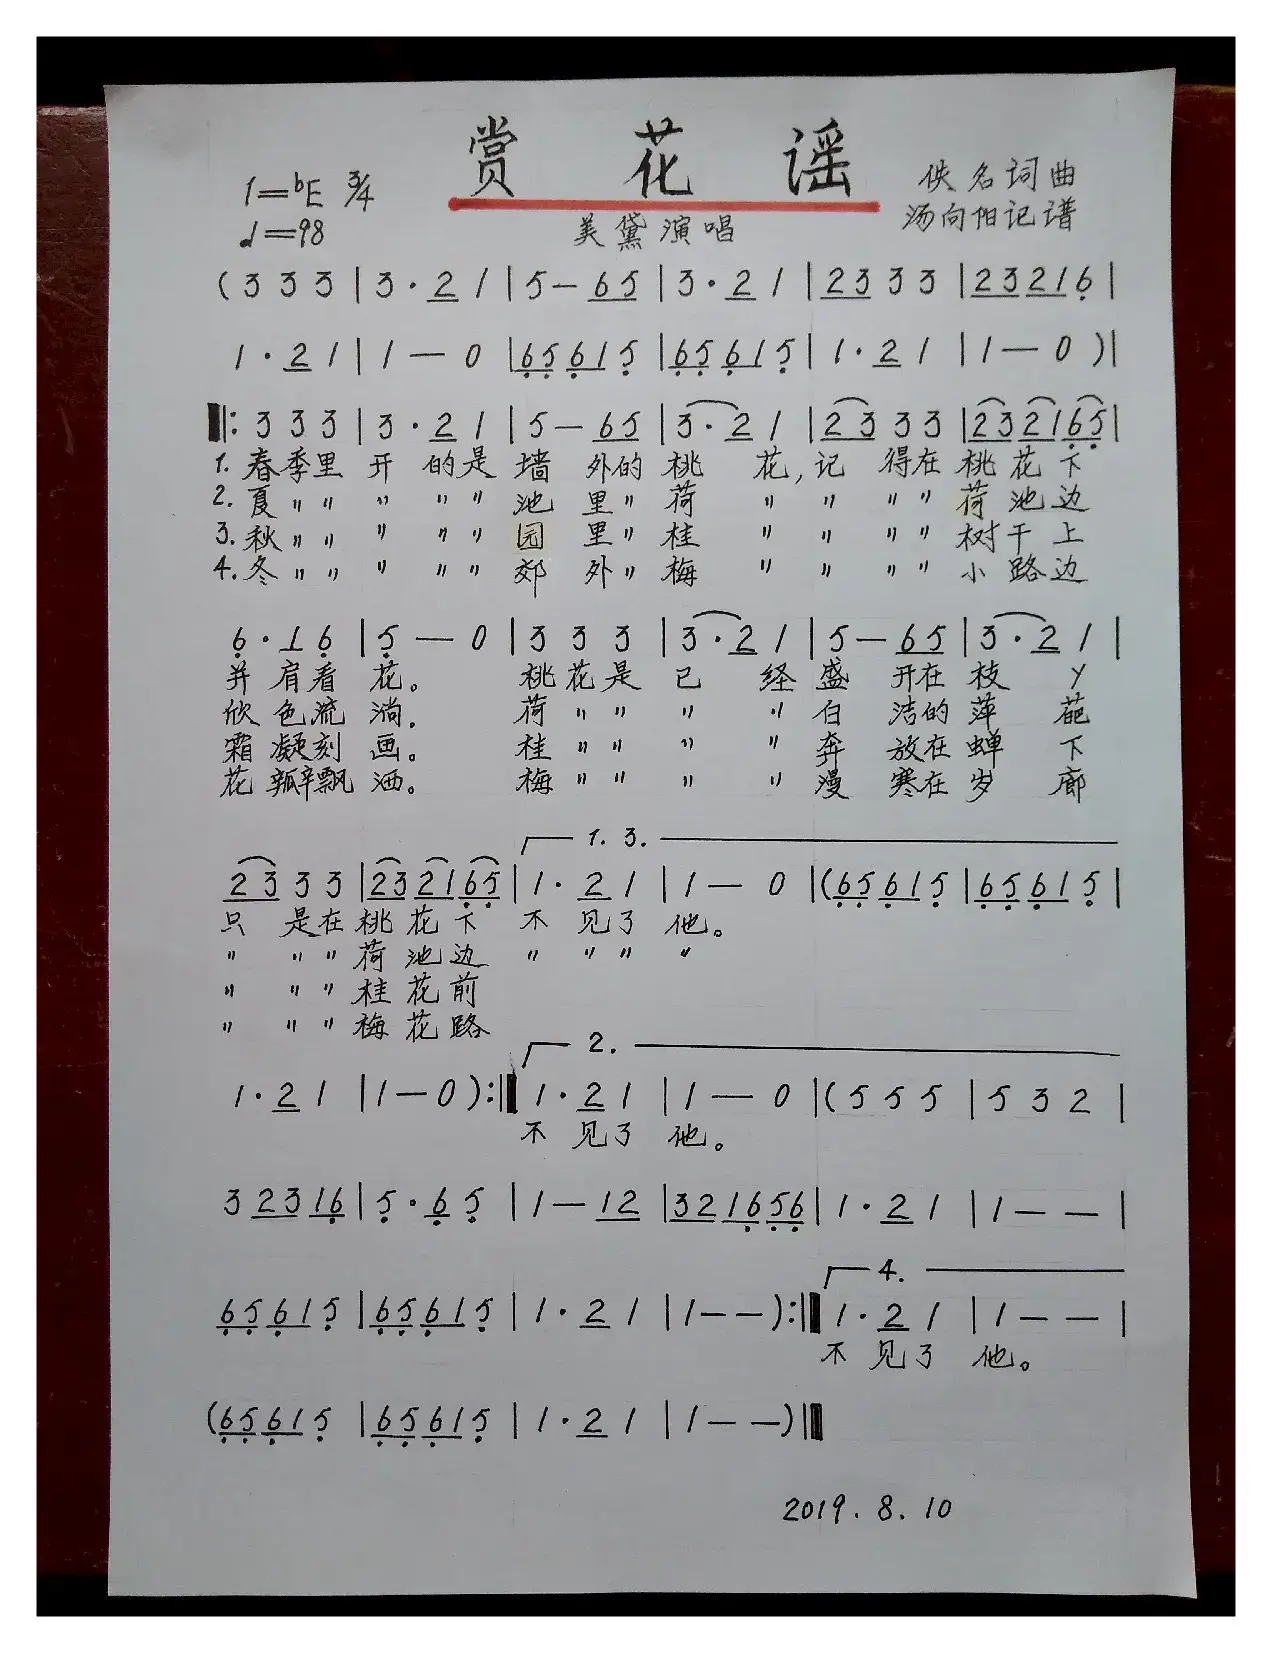 赏花谣
1=bE 3/4
佚名词曲
♩=98
美黛演唱
汤向阳记谱
(3 3 3 | 3 · 2 1 | 5 — 6 5 | 3 · 2 1 | 2 3 3 3 | 2 3 2 1 6 |
1 · 2 1 | 1 — 0 | 6 5 6 1 5 | 6 5 6 1 5 | 1 · 2 1 | 1 — 0 )|
‖: 3 3 3 | 3 · 2 1 | 5 — 6 5 | 3 · 2 1 | 2 3 3 3 | 2 3 2 1 6 5 |
1. 春季里 开 的是 墙 外的 桃 花,记 得在 桃花下
2. 夏〃〃 〃 〃〃 池 里〃 荷 〃 〃 〃〃 荷池边
3. 秋〃〃 〃 〃〃 园 里〃 桂 〃 〃 〃〃 树干上
4. 冬〃〃 〃 〃〃 郊 外〃 梅 〃 〃 〃〃 小路边
6 · 1 6 | 5 — 0 | 3 3 3 | 3 · 2 1 | 5 — 6 5 | 3 · 2 1 |
并 肩看 花。 桃花是 已 经 盛 开在 枝 丫
欣 色流 淌. 荷〃〃 〃 〃 白 洁的 萍 葩
霜 凝刻 画。 桂〃〃 〃 〃 奔 放在 蝉 下
花 瓣飘 洒。 梅〃〃 〃 〃 漫 寒在 岁 廊
1. 3.
2 3 3 3 | 2 3 2 1 6 5 | 1 · 2 1 | 1 — 0 |(6 5 6 1 5 | 6 5 6 1 5 |
只 是在 桃花下 不 见了 他。
〃 〃〃 荷池边 〃 〃〃 〃
〃 〃〃 桂花前
〃 〃〃 梅花路
2.
1 · 2 1 | 1 — 0 ):‖ 1 · 2 1 | 1 — 0 |(5 5 5 | 5 3 2 |
不 见了 他。
3 2 3 1 6 | 5 · 6 5 | 1 — 1 2 | 3 2 1 6 5 6 | 1 · 2 1 | 1 — — |
4.
6 5 6 1 5 | 6 5 6 1 5 | 1 · 2 1 | 1 — — ):‖ 1 · 2 1 | 1 — — |
不 见了 他。
(6 5 6 1 5 | 6 5 6 1 5 | 1 · 2 1 | 1 — — )‖
2019. 8. 10